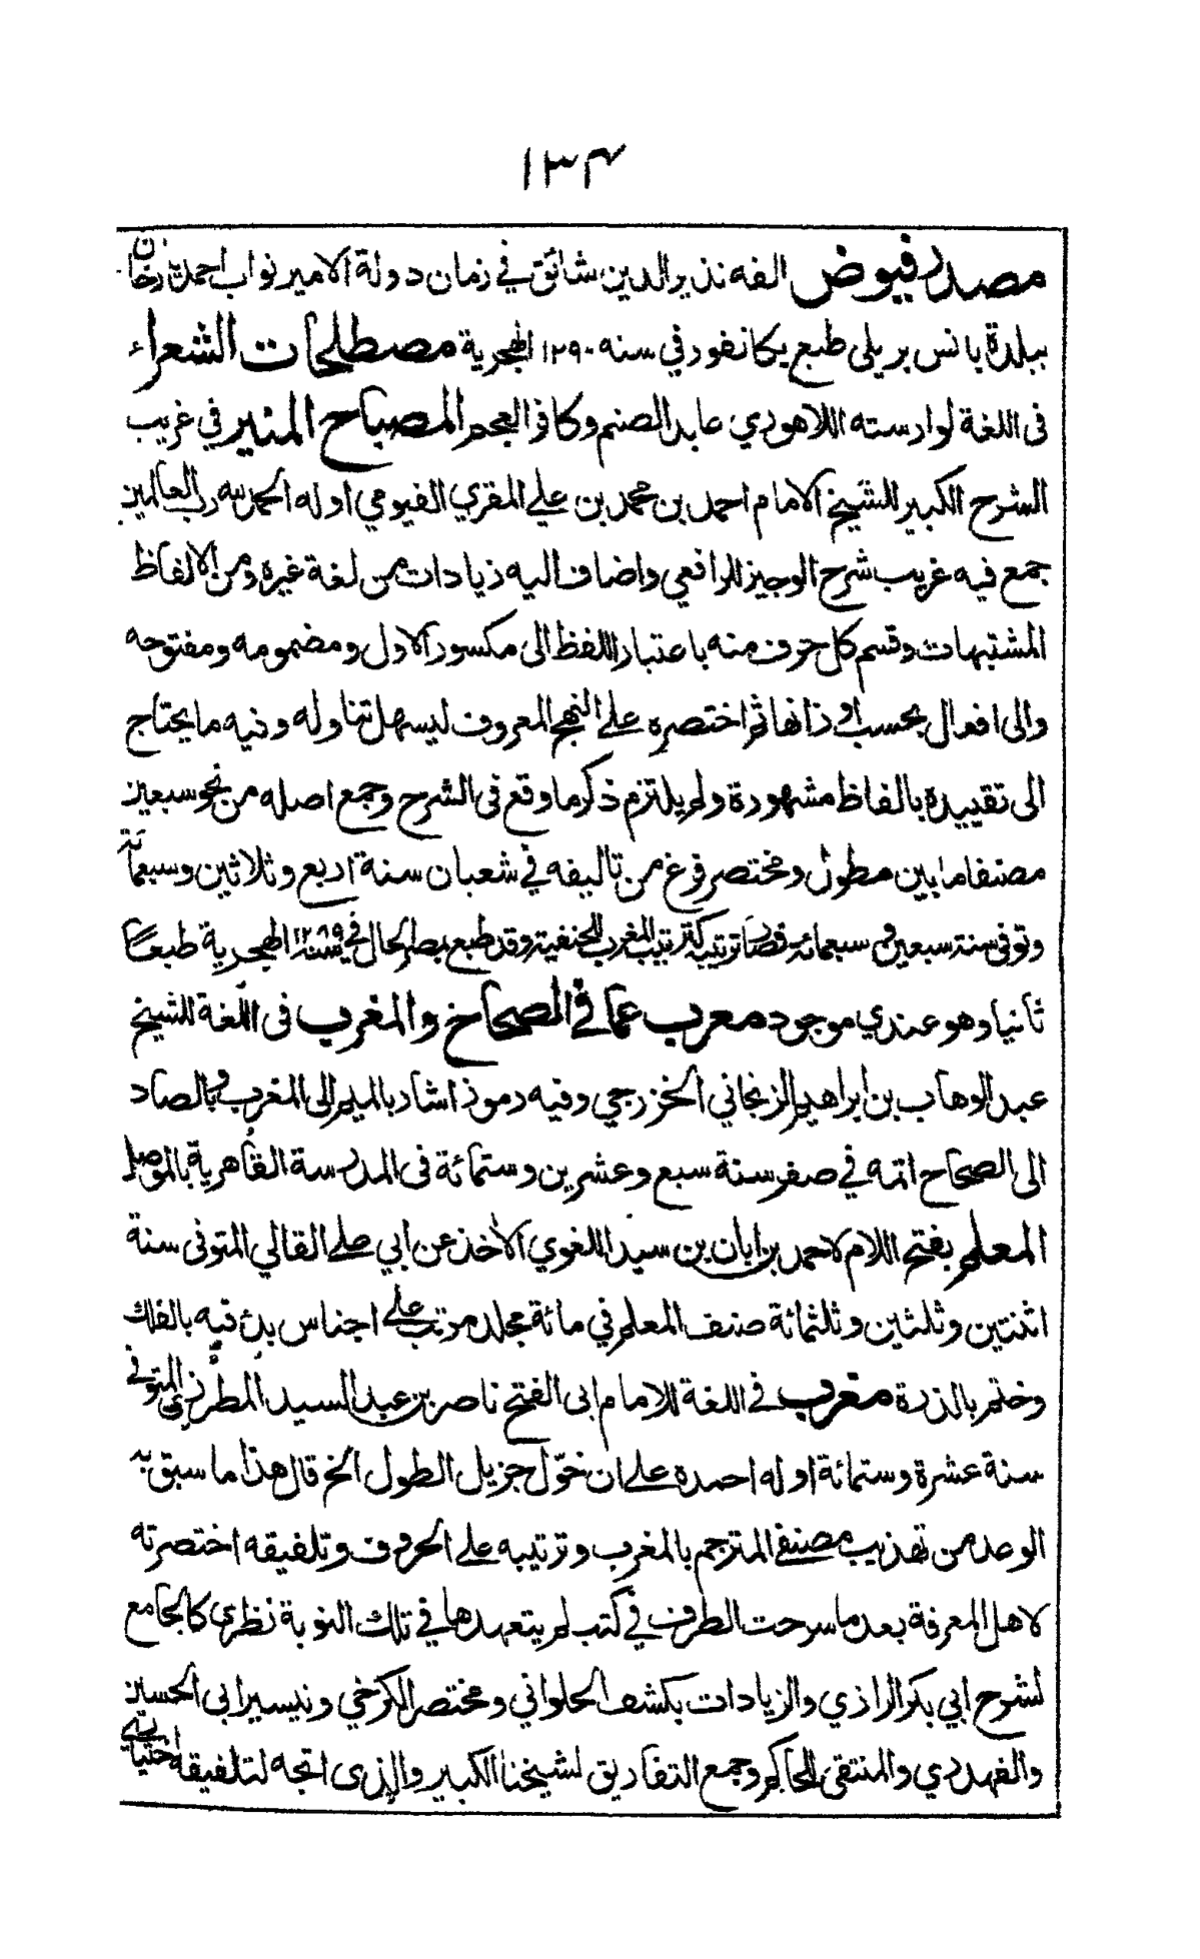 ١٣٤
مصدر فيوض الفه نذير الدين شائق في زمان دولة الامير نواب احمد يار خان
ببلدة بانس بريلى طبع بكانفور في سنه ١٢٩٠ الهجرية مصطلحات الشعراء
فى اللغة لوارسته اللاهوري عابد الصنم وكافر العجم المصباح المنير في غريب
الشرح الكبير للشيخ الامام احمد بن محمد بن علي المقري الفيومي اوله الحمد لله رب العالمين
جمع فيه غريب شرح الوجيز للرافعي واضاف اليه زيادات من لغة غيره ومن الالفاظ
المشتبهات وقسم كل حرف منه باعتبار اللفظ الى مكسور الاول ومضمومه ومفتوحه
والى افعال بحسب اوزانها ثم اختصره على النهج المعروف ليسهل تناوله وفيه ما يحتاج
الى تقييده بالفاظ مشهورة ولم يلتزم ذكر ما وقع فى الشرح وجمع اصله من نحو سبعين
مصنفا ما بين مطول ومختصر فرغ من تاليفه في شعبان سنة اربع وثلاثين وسبعمائة
وتوفى سنة سبعين وسبعمائة ترتيبه كترتيب المغرب للحنفية وقد طبع بمصر الحال في سنة ١٢٨٩ الهجرية طبعًا
ثانيا وهو عندي موجود معرب عما في الصحاح والمغرب فى اللغة للشيخ
عبد الوهاب بن ابراهيم الزنجاني الخزرجي وفيه رموز اشار بالميم الى المغرب وبالصاد
الى الصحاح اتمه في صفر سنة سبع وعشرين وستمائة فى المدرسة القاهرية بالموصل
المعلم بفتح اللام لاحمد بن ابان بن سيد اللغوي الاخذ عن ابي علي القالي المتوفى سنة
اثنتين وثلثين وثلثمائة صنف المعلم في مائة مجلد مرتب على اجناس بدئ فيه بالفلك
وختم بالذرة مغرب في اللغة للامام ابى الفتح ناصر بن عبد السيد المطرزى المتوفى
سنة عشرة وستمائة اوله احمده على ان خوّل جزيل الطول الخ قال هذا ما سبق به
الوعد من تهذيب مصنفي المترجم بالمغرب وترتيبه على الحروف وتلفيقه اختصرته
لاهل المعرفة بعد ما سرحت الطرف في كتب لم يتعهدها في تلك النوبة نظري كالجامع
لشرح ابي بكر الرازي والزيادات بكشف الحلواني ومختصر الكرخي وتيسير ابى الحسين
والقدوري والمنتقى للحاكم وجمع التفاريق لشيخنا الكبير والذى اتجه لتلفيقه اختيارى